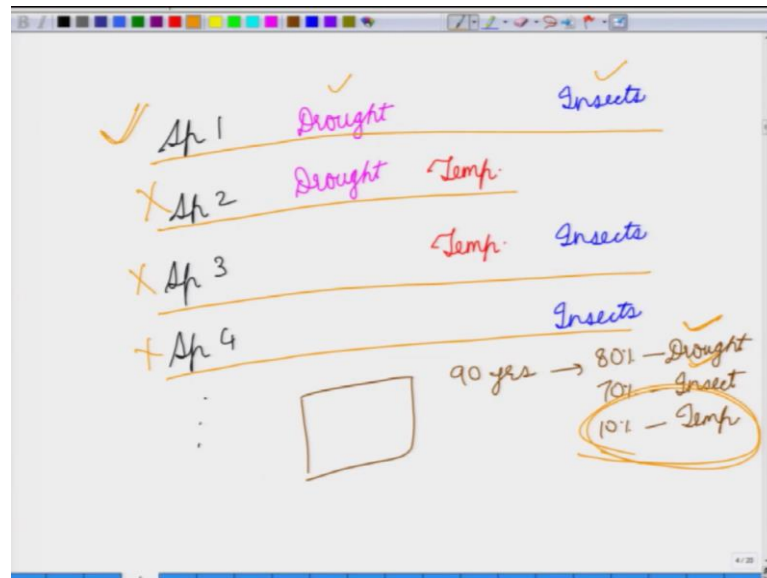 Sp 1 Drought Insects
Sp 2 Drought Temp.
Sp 3 Temp. Insects
Sp 4 Insects
90 yrs → 80% — Drought
70% — Insect
10% — Temp
4/20